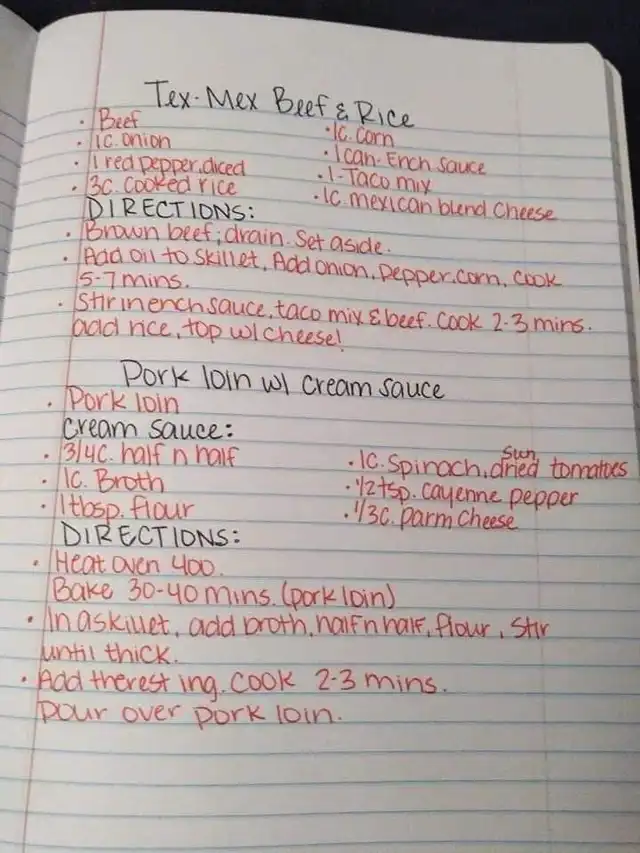 Tex-Mex Beef & Rice
• Beef
• 1c. onion
• 1 red pepper, diced
• 3c. cooked rice
• 1c. corn
• 1 can - Ench sauce
• 1 - Taco mix
• 1c. mexican blend cheese
DIRECTIONS:
• Brown beef; drain. Set aside.
• Add oil to skillet, Add onion, pepper, corn, cook
5-7 mins.
• Stir in ench sauce, taco mix & beef. Cook 2-3 mins.
add rice, top w/ cheese!
Pork loin w/ cream sauce
• Pork loin
cream sauce:
• 3/4c. half n half
• 1c. Broth
• 1 tbsp. flour
• 1c. spinach, sun dried tomatoes
• 1/2 tsp. cayenne pepper
• 1/3c. parm cheese
DIRECTIONS:
• Heat oven 400.
Bake 30-40 mins. (pork loin)
• In a skillet, add broth, half n half, flour, stir
until thick.
• Add the rest ing. cook 2-3 mins.
pour over pork loin.